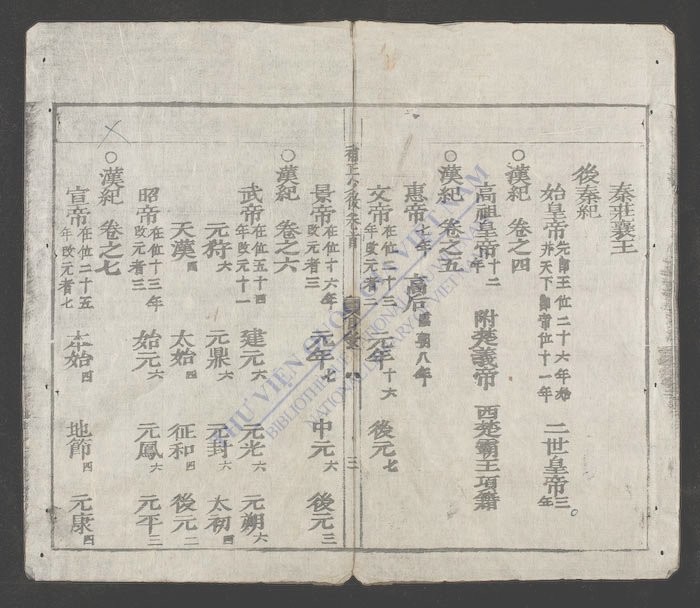 秦莊襄王
後秦紀
始皇帝 先即王位二十六年始并天下即帝位十一年 二世皇帝 三年
○漢紀 卷之四
高祖皇帝 十二年 附楚義帝 西楚霸王項籍
○漢紀 卷之五
惠帝 七年 高后 臨朝八年
文帝 在位二十三年改元者二 元年 十六 後元 七
景帝 在位十六年改元者三 元年 七 中元 六 後元 三
○漢紀 卷之六
武帝 在位五十四年改元十一 建元 六 元光 六 元朔 六
元狩 六 元鼎 六 元封 六 太初 四
天漢 四 太始 四 征和 四 後元 二
昭帝 在位十三年改元者三 始元 六 元鳳 六 元平 三
○漢紀 卷之七
宣帝 在位二十五年改元者七 本始 四 地節 四 元康 四
三
THƯ VIỆN QUỐC GIA VIỆT NAM
BIBLIOTHÈQUE NATIONALE DU VIETNAM
NATIONAL LIBRARY OF VIETNAM